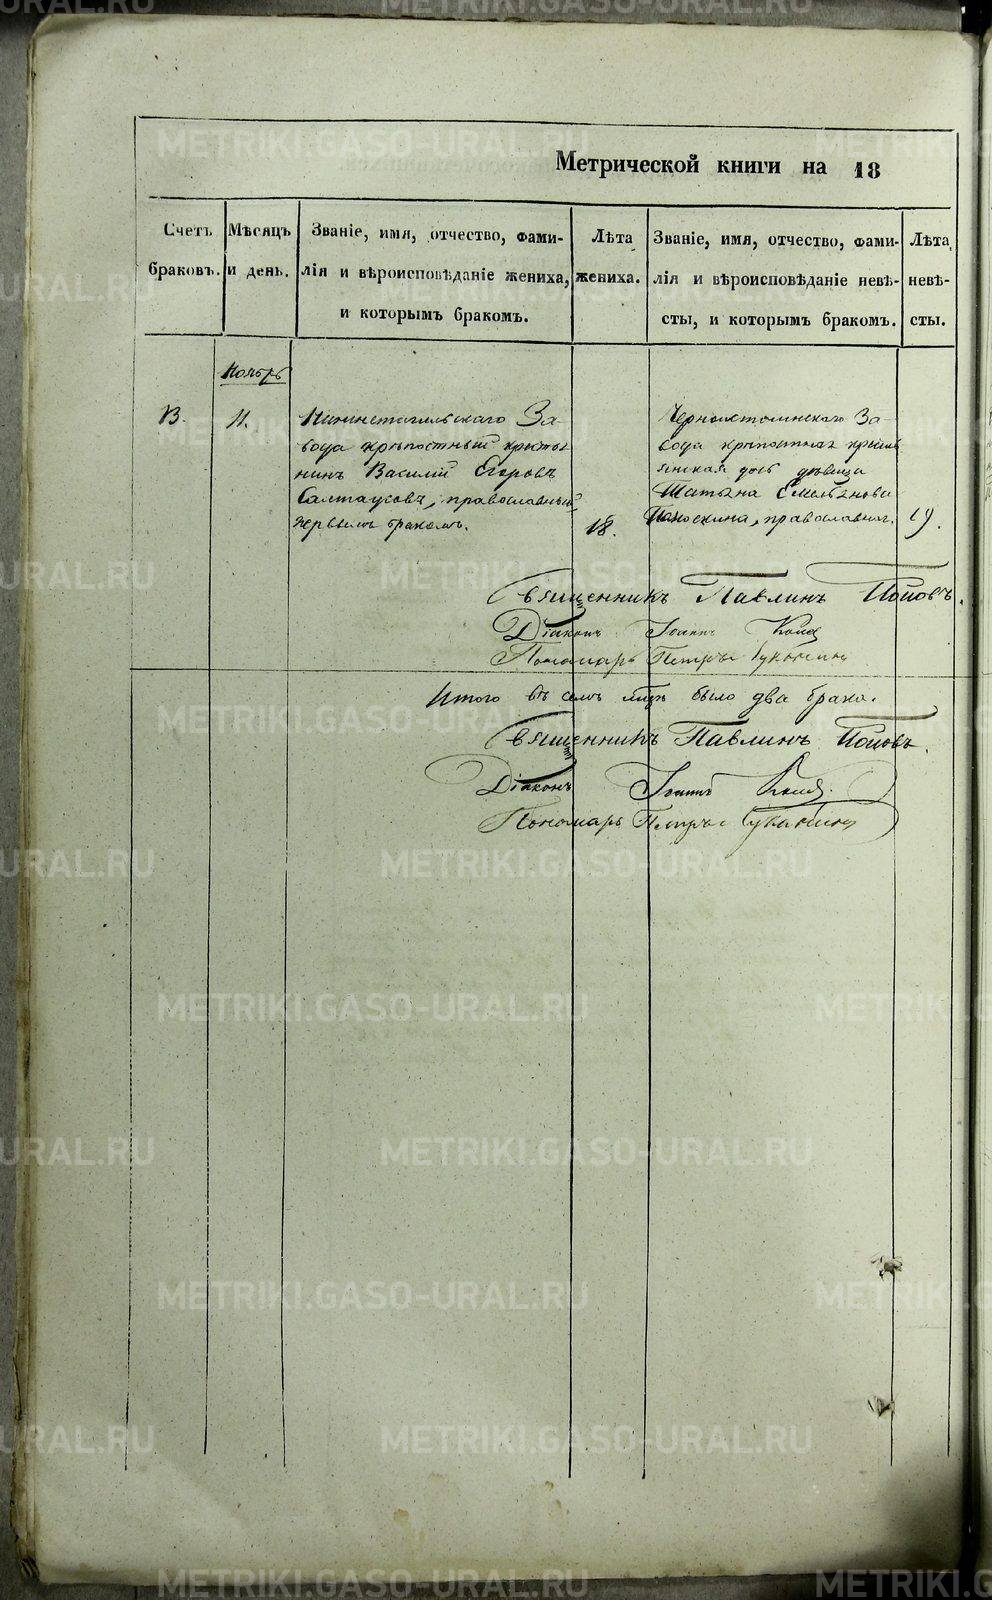 Метрической книги на 18
Счетъ браковъ.
Мѣсяцъ и день.
Званіе, имя, отчество, фами-
лія и вѣроисповѣданіе жениха,
и которымъ бракомъ.
Лѣта
жениха.
Званіе, имя, отчество, фами-
лія и вѣроисповѣданіе невѣ-
сты, и которымъ бракомъ.
Лѣта
невѣ-
сты.
Ноябрь
13.
11.
Нижнетагильскаго За-
вода крѣпостный кресть-
нинъ Василій Егоровъ
православный
первымъ бракомъ.
18.
Черноисточинскаго За-
вода крѣпостная кресть
янская дочь дѣвица
Татьяна Емельянова
православная.
19.
Священникъ Павлинъ Поповъ.
Діаконъ Іоаннъ
Пономарь Петръ
Итого въ семъ было два брака.
Священникъ Павлинъ Поповъ.
Діаконъ Іоаннъ
Пономарь Петръ
METRIKI.GASO-URAL.RU